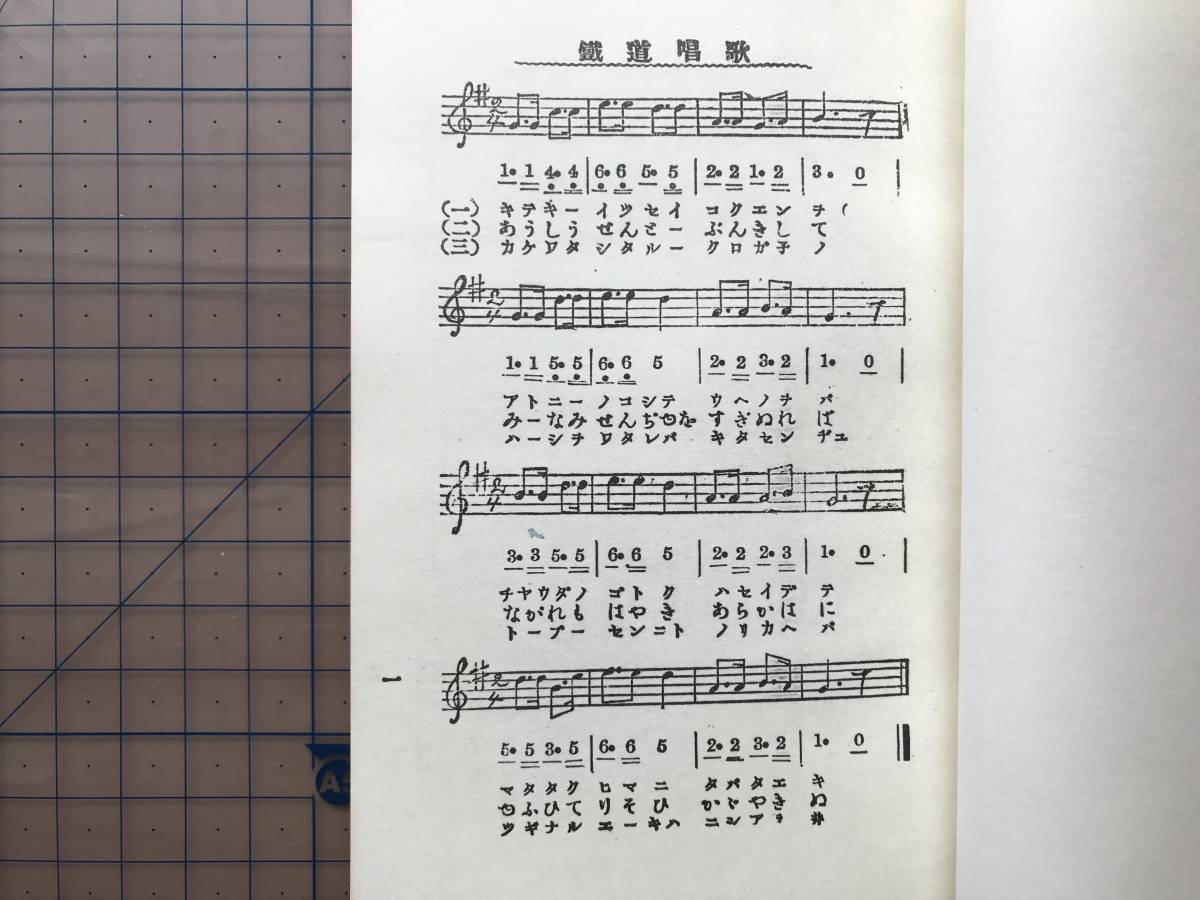 鐵道唱歌
1. 1 4. 4 | 6. 6 5. 5 | 2. 2 1. 2 | 3. 0 |
(一) キテキー イツセイ コクエン チ(
(二) あうしう せんとー ぶんきし て
(三) カケワタ シタルー クロガ子 ノ
1. 1 5. 5 | 6. 6 5 | 2. 2 3. 2 | 1. 0 |
アトニー ノコシテ ウヘノチ バ
みーなみ せんぢゆを すぎぬれ ば
ハーシチ ワタレバ キタセン ヂユ
3. 3 5. 5 | 6. 6 5 | 2. 2 2. 3 | 1. 0 |
チヤウダノ ゴトク ハセイデ テ
ながれも はやき あらかは に
トーブー センニト ノリカヘ バ
5. 5 3. 5 | 6. 6 5 | 2. 2 3. 2 | 1. 0
マタタク ヒマニ タバタエ キ
ゆふひて りそひ かゞやき ぬ
ツギナル エーキハ ニシアラ 井
一
A5